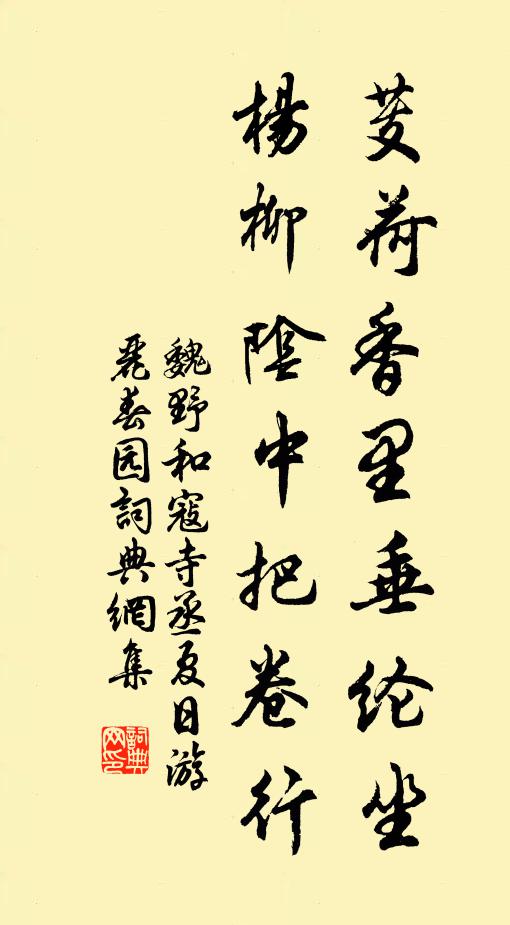 芰荷香里垂纶坐
楊柳陰中把卷行
魏野和寇寺丞夏日游
麗春园詞典網集
詞典网印